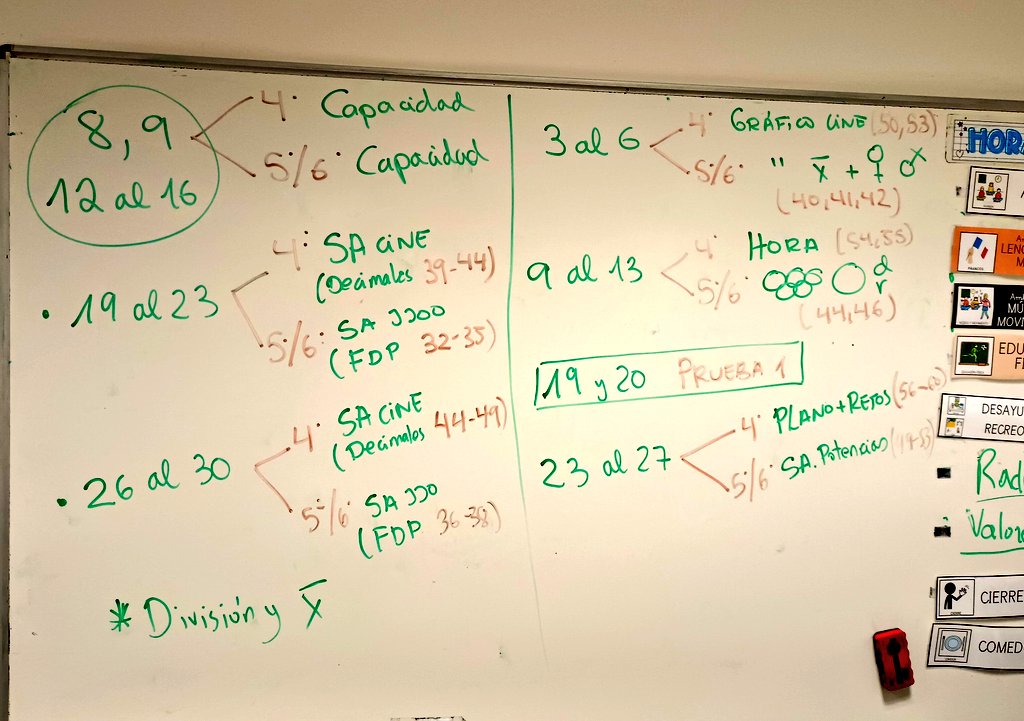 8, 9
12 al 16
4º Capacidad
5º/6º Capacidad
• 19 al 23
4º SA CINE
(Decimales 39-44)
5º/6º SA JJOO
(FDP 32-35)
• 26 al 30
4º SA CINE
(Decimales 44-49)
5º/6º SA JJO
(FDP 36-38)
* División y x̄
3 al 6
4º GRÁFICO LINE (50,53)
5º/6º " x̄ + ♀ ♂
(40,41,42)
9 al 13
4º HORA (54,55)
5º/6º d
r
(44,46)
19 y 20 PRUEBA 1
23 al 27
4º PLANO+RETOS
5º/6º SA. Potencias
HORA
FRANCÉS
MÚ
MOVI
EDU
DESAYU
RECREO
Rad
Valor
CIERRE
COMED